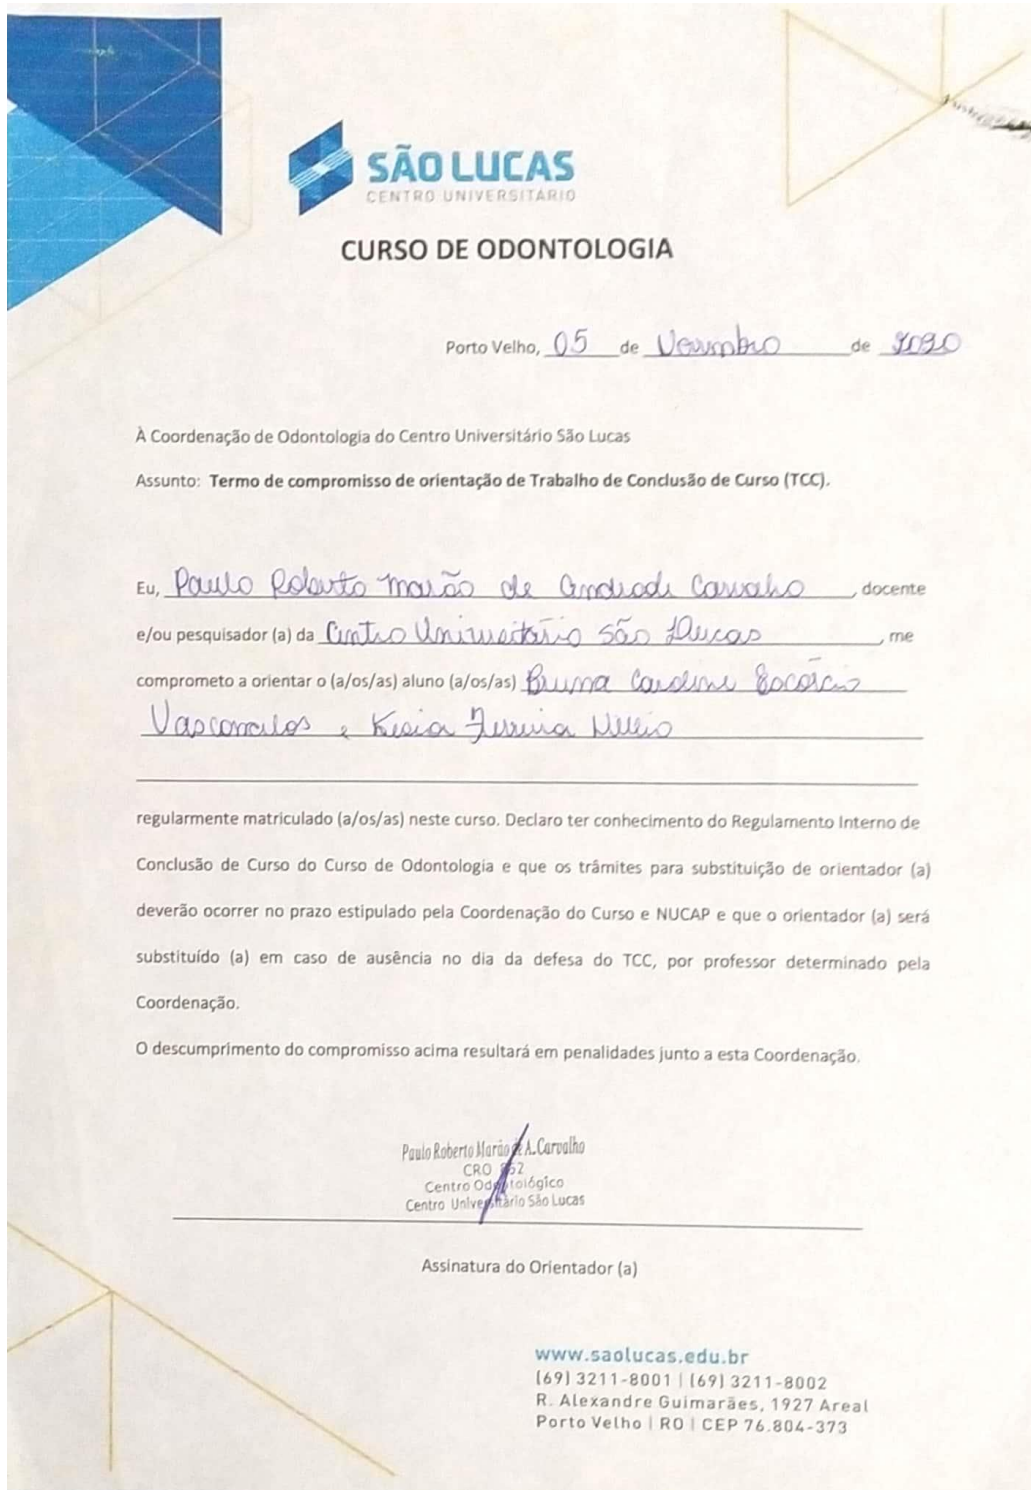 SÃO LUCAS
CENTRO UNIVERSITÁRIO
CURSO DE ODONTOLOGIA
Porto Velho, 05 de de 2020
À Coordenação de Odontologia do Centro Universitário São Lucas
Assunto: Termo de compromisso de orientação de Trabalho de Conclusão de Curso (TCC).
Eu, Paulo Roberto Marão de Andrade Carvalho, docente
e/ou pesquisador (a) da Centro Universitário São Lucas, me
comprometo a orientar o (a/os/as) aluno (a/os/as) Bruna Caroline
Vasconcelos e Kesia Ferreira
regularmente matriculado (a/os/as) neste curso. Declaro ter conhecimento do Regulamento Interno de
Conclusão de Curso do Curso de Odontologia e que os trâmites para substituição de orientador (a)
deverão ocorrer no prazo estipulado pela Coordenação do Curso e NUCAP e que o orientador (a) será
substituído (a) em caso de ausência no dia da defesa do TCC, por professor determinado pela
Coordenação.
O descumprimento do compromisso acima resultará em penalidades junto a esta Coordenação.
Paulo Roberto Marão de A. Carvalho
CRO
Centro Odontológico
Centro Universitário São Lucas
Assinatura do Orientador (a)
www.saolucas.edu.br
(69) 3211-8001 | (69) 3211-8002
R. Alexandre Guimarães, 1927 Areal
Porto Velho | RO | CEP 76.804-373